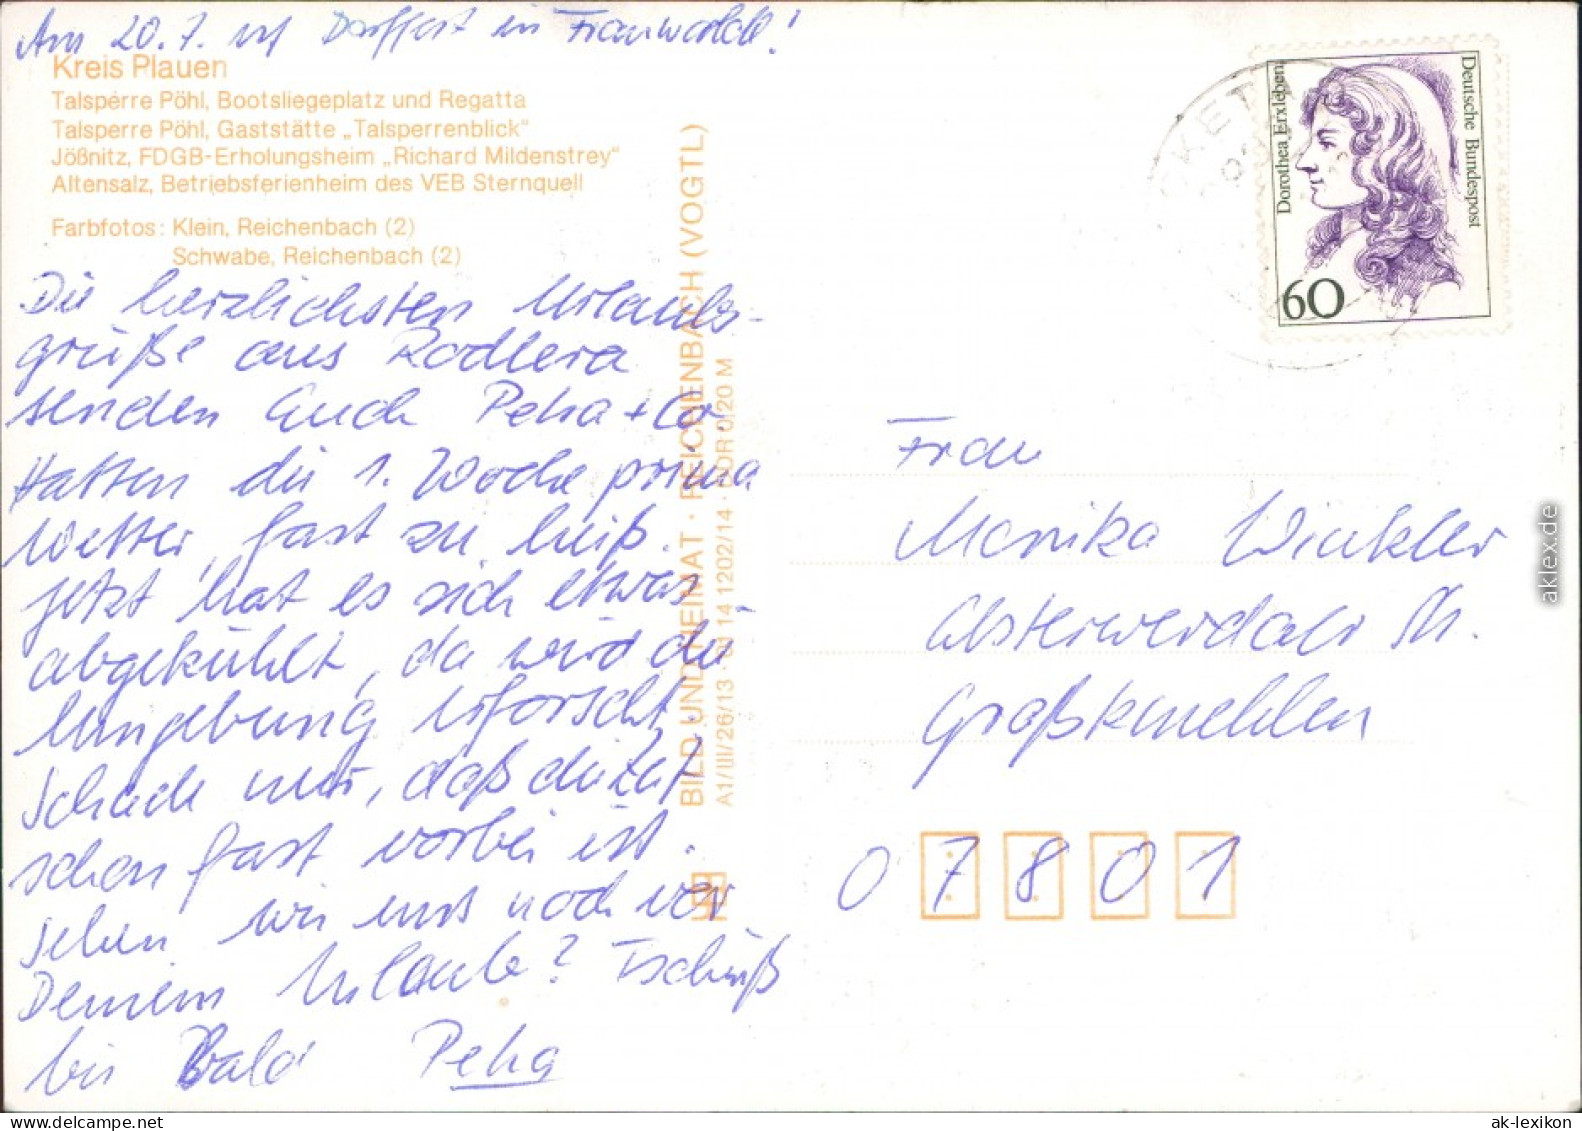 Am 20.7. ist Dorffest in Frauwalde!
Kreis Plauen
Talsperre Pöhl, Bootsliegeplatz und Regatta
Talsperre Pöhl, Gaststätte „Talsperrenblick“
Jößnitz, FDGB-Erholungsheim „Richard Mildenstrey“
Altensalz, Betriebsferienheim des VEB Sternquell
Farbfotos: Klein, Reichenbach (2)
Schwabe, Reichenbach (2)
Die herzlichsten Urlaubs-
grüße aus Rodlera
senden Euch Petra + Co.
Hatten die 1. Woche prima
Wetter, fast zu heiß.
Jetzt hat es sich etwas
abgekühlt, da wird die
Umgebung erforscht.
Schade nur, daß die Zeit
schon fast vorbei ist.
Sehen wir uns noch vor
Deinem Urlaub? Tschüß
bis Bald Petra
BILD UND HEIMAT · REICHENBACH (VOGTL)
A1/III/26/13 · 01 14 1202/14 · DDR 0,20 M
Dorothea Erxleben
Deutsche Bundespost
60
Frau
Monika Winkler
Elsterwerdaer Str.
Großkmehlen
0 7 8 0 1
aklex.de
ak-lexikon